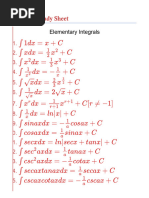 Study Sheet
Elementary Integrals
1. ∫ 1dx = x + C
2. ∫ xdx = ½x² + C
3. ∫ x²dx = ⅓x³ + C
4. ∫ 1/x² dx = −1/x + C
5. ∫ √x dx = ⅔x^(3/2) + C
6. ∫ 1/√x dx = 2√x + C
7. ∫ x^r dx = 1/(r+1) x^(r+1) + C[r ≠ −1]
8. ∫ 1/x dx = ln|x| + C
9. ∫ sinaxdx = −1/a cosax + C
10. ∫ cosaxdx = 1/a sinax + C
11. ∫ sec²axdx = 1/a tanax + C
12. ∫ csc²axdx = −1/a cotax + C
13. ∫ secaxtanaxdx = 1/a secax + C
14. ∫ cscaxcotaxdx = −1/a cscax + C